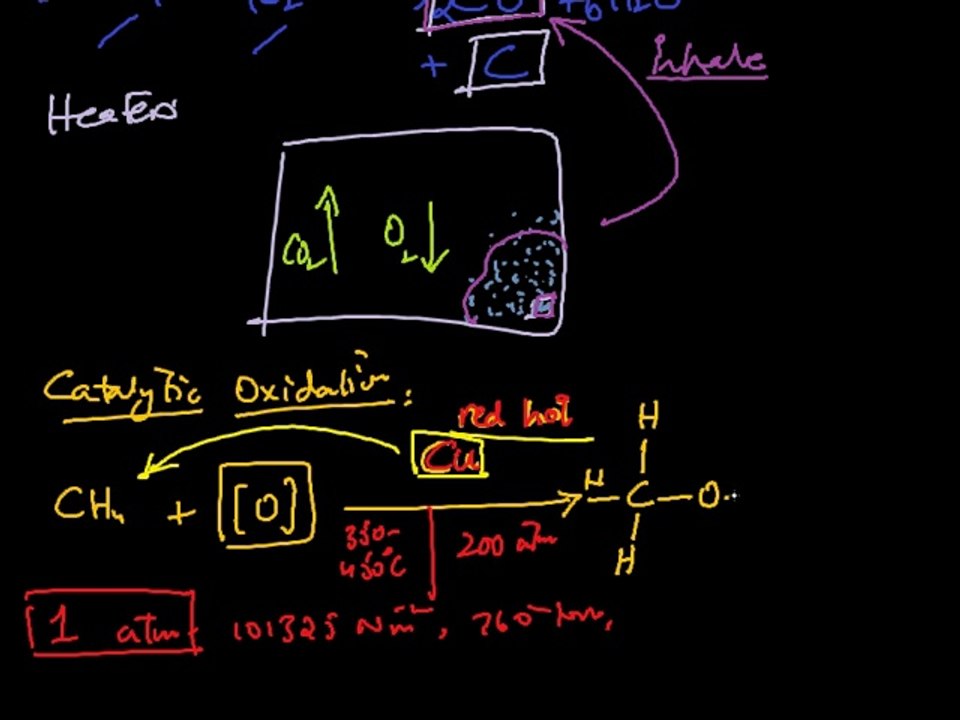 + C
Inhale
Heaters
CO2 ↑ O2 ↓
Catalytic Oxidation:
red hot
Cu
CH4 + [O] → H—C—O-
H
H
350-
450°C
200 atm
1 atm. 101325 Nm⁻², 760